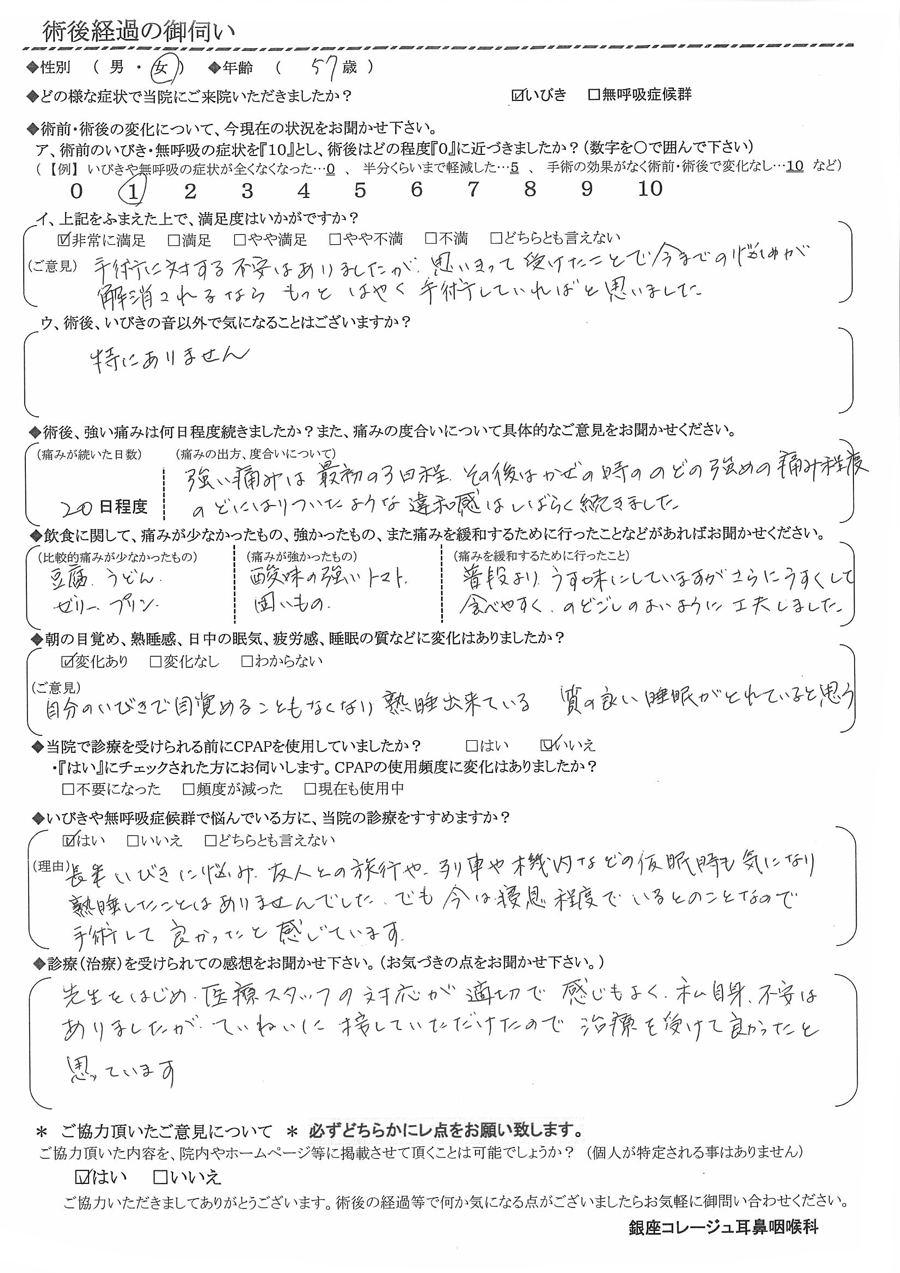 術後経過の御伺い
◆性別 ( 男 ・ 女 ) ◆年齢 ( 57歳 )
◆どの様な症状で当院にご来院いただきましたか? ☑いびき □無呼吸症候群
◆術前・術後の変化について、今現在の状況をお聞かせ下さい。
ア、術前のいびき・無呼吸の症状を『10』とし、術後はどの程度『0』に近づきましたか?(数字を〇で囲んで下さい)
(【例】 いびきや無呼吸の症状が全くなくなった…0 、 半分くらいまで軽減した…5 、 手術の効果がなく術前・術後で変化なし…10 など)
0 1 2 3 4 5 6 7 8 9 10
イ、上記をふまえた上で、満足度はいかがですか?
☑非常に満足 □満足 □やや満足 □やや不満 □不満 □どちらとも言えない
(ご意見) 手術に対する不安はありましたが、思いきって受けたことで今までの悩みが
解消されるなら もっと はやく 手術していればと思いました
ウ、術後、いびきの音以外で気になることはございますか?
特にありません
◆術後、強い痛みは何日程度続きましたか?また、痛みの度合いについて具体的なご意見をお聞かせください。
(痛みが続いた日数) (痛みの出方、度合いについて)
強い痛みは最初の3日程、その後はかぜの時ののどの強めの痛み程度
20日程度 のどにはりついたような違和感はしばらく続きました
◆飲食に関して、痛みが少なかったもの、強かったもの、また痛みを緩和するために行ったことなどがあればお聞かせください。
(比較的痛みが少なかったもの) (痛みが強かったもの) (痛みを緩和するために行ったこと)
豆腐、うどん、 酸味の強いトマト、 普段より、うす味にしていますがさらにうすくして
ゼリー、プリン、 固いもの、 食べやすく、のどごしのよいように工夫しました
◆朝の目覚め、熟睡感、日中の眠気、疲労感、睡眠の質などに変化はありましたか?
☑変化あり □変化なし □わからない
(ご意見)
自分のいびきで目覚めることもなくなり 熟睡出来ている 質の良い睡眠がとれていると思う
◆当院で診療を受けられる前にCPAPを使用していましたか? □はい ☑いいえ
・『はい』にチェックされた方にお伺いします。CPAPの使用頻度に変化はありましたか?
□不要になった □頻度が減った □現在も使用中
◆いびきや無呼吸症候群で悩んでいる方に、当院の診療をすすめますか?
☑はい □いいえ □どちらとも言えない
(理由) 長年いびきに悩み、友人との旅行や、列車や機内などの仮眠時も気になり
熟睡したことはありませんでした。でも今は寝息程度でいるとのことなので
手術して良かったと感じています
◆診療(治療)を受けられての感想をお聞かせ下さい。(お気づきの点をお聞かせ下さい。)
先生をはじめ、医療スタッフの対応が適切で感じもよく、私自身、不安は
ありましたが、ていねいに接していただけたので治療を受けて良かったと
思っています
＊ ご協力頂いたご意見について ＊ 必ずどちらかにレ点をお願い致します。
ご協力頂いた内容を、院内やホームページ等に掲載させて頂くことは可能でしょうか? (個人が特定される事はありません)
☑はい □いいえ
ご協力いただきましてありがとうございます。術後の経過等で何か気になる点がございましたらお気軽に御問い合わせください。
銀座コレージュ耳鼻咽喉科